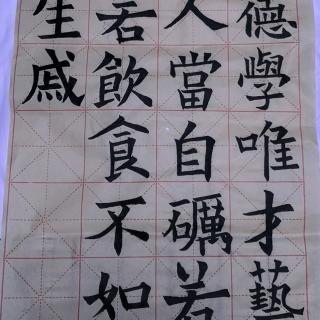 德學唯才藝
人當自礪若
若飲食不如
生戚